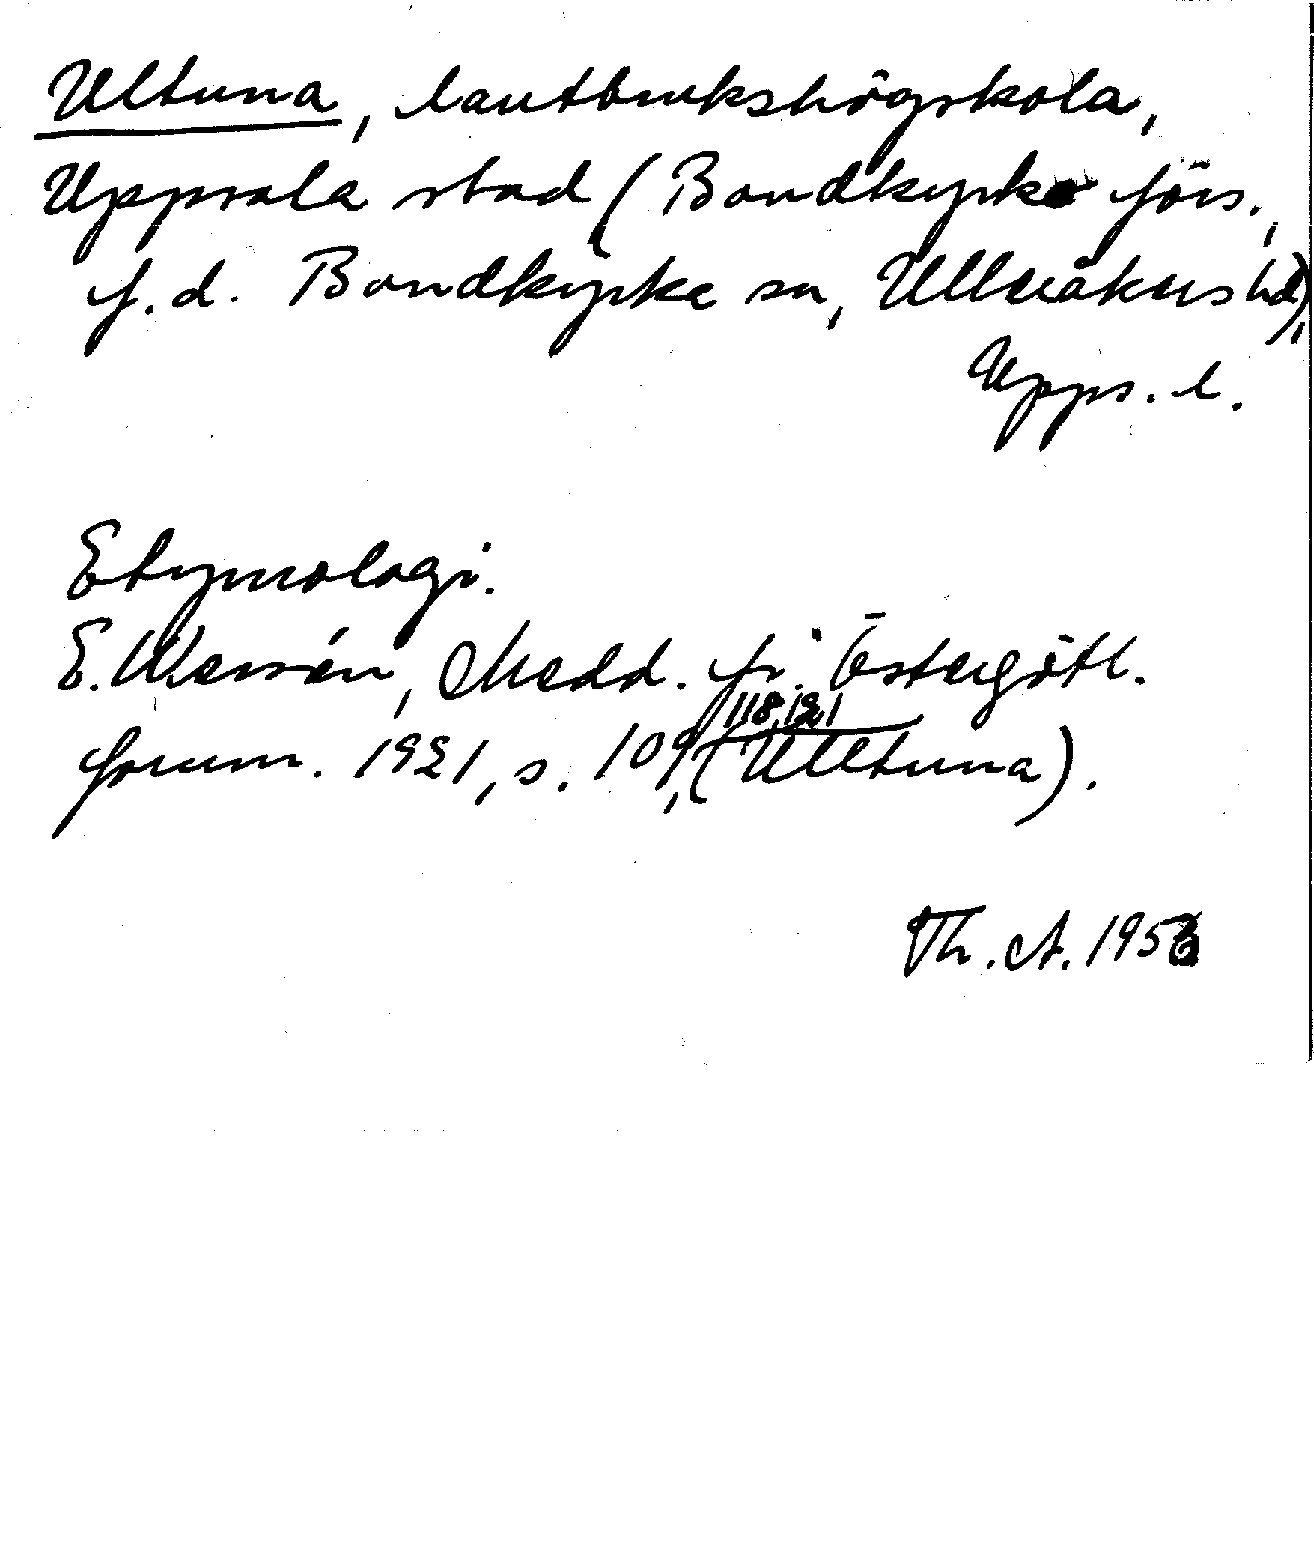 Ultuna, lantbrukshögskola,
Uppsala stad (Bondkyrko förs.,
f.d. Bondkyrke sn, Ulleråkers hd),
Upps. l.
Etymologi.
E. Wessén, Medd. fr. Östergötl.
fornm. 1921, s. 109, 118, 121 (Ulltuna).
Th. A. 1953